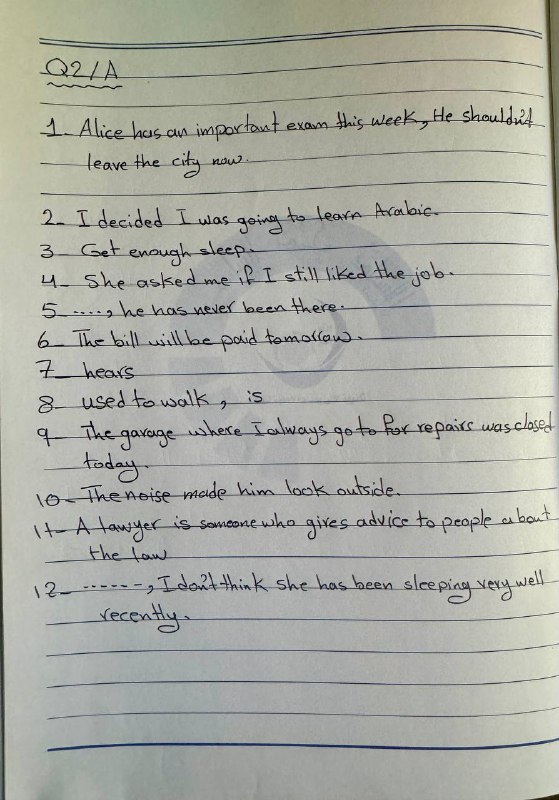 Q2/A
1- Alice has an important exam this week, He shouldn't
leave the city now.
2- I decided I was going to learn Arabic.
3- Get enough sleep.
4- She asked me if I still liked the job.
5- ...., he has never been there.
6- The bill will be paid tomorrow.
7- hears
8- used to walk, is
9- The garage where I always go to for repairs was closed
today.
10- The noise made him look outside.
11- A lawyer is someone who gives advice to people about
the law
12- ......, I don't think she has been sleeping very well
recently.